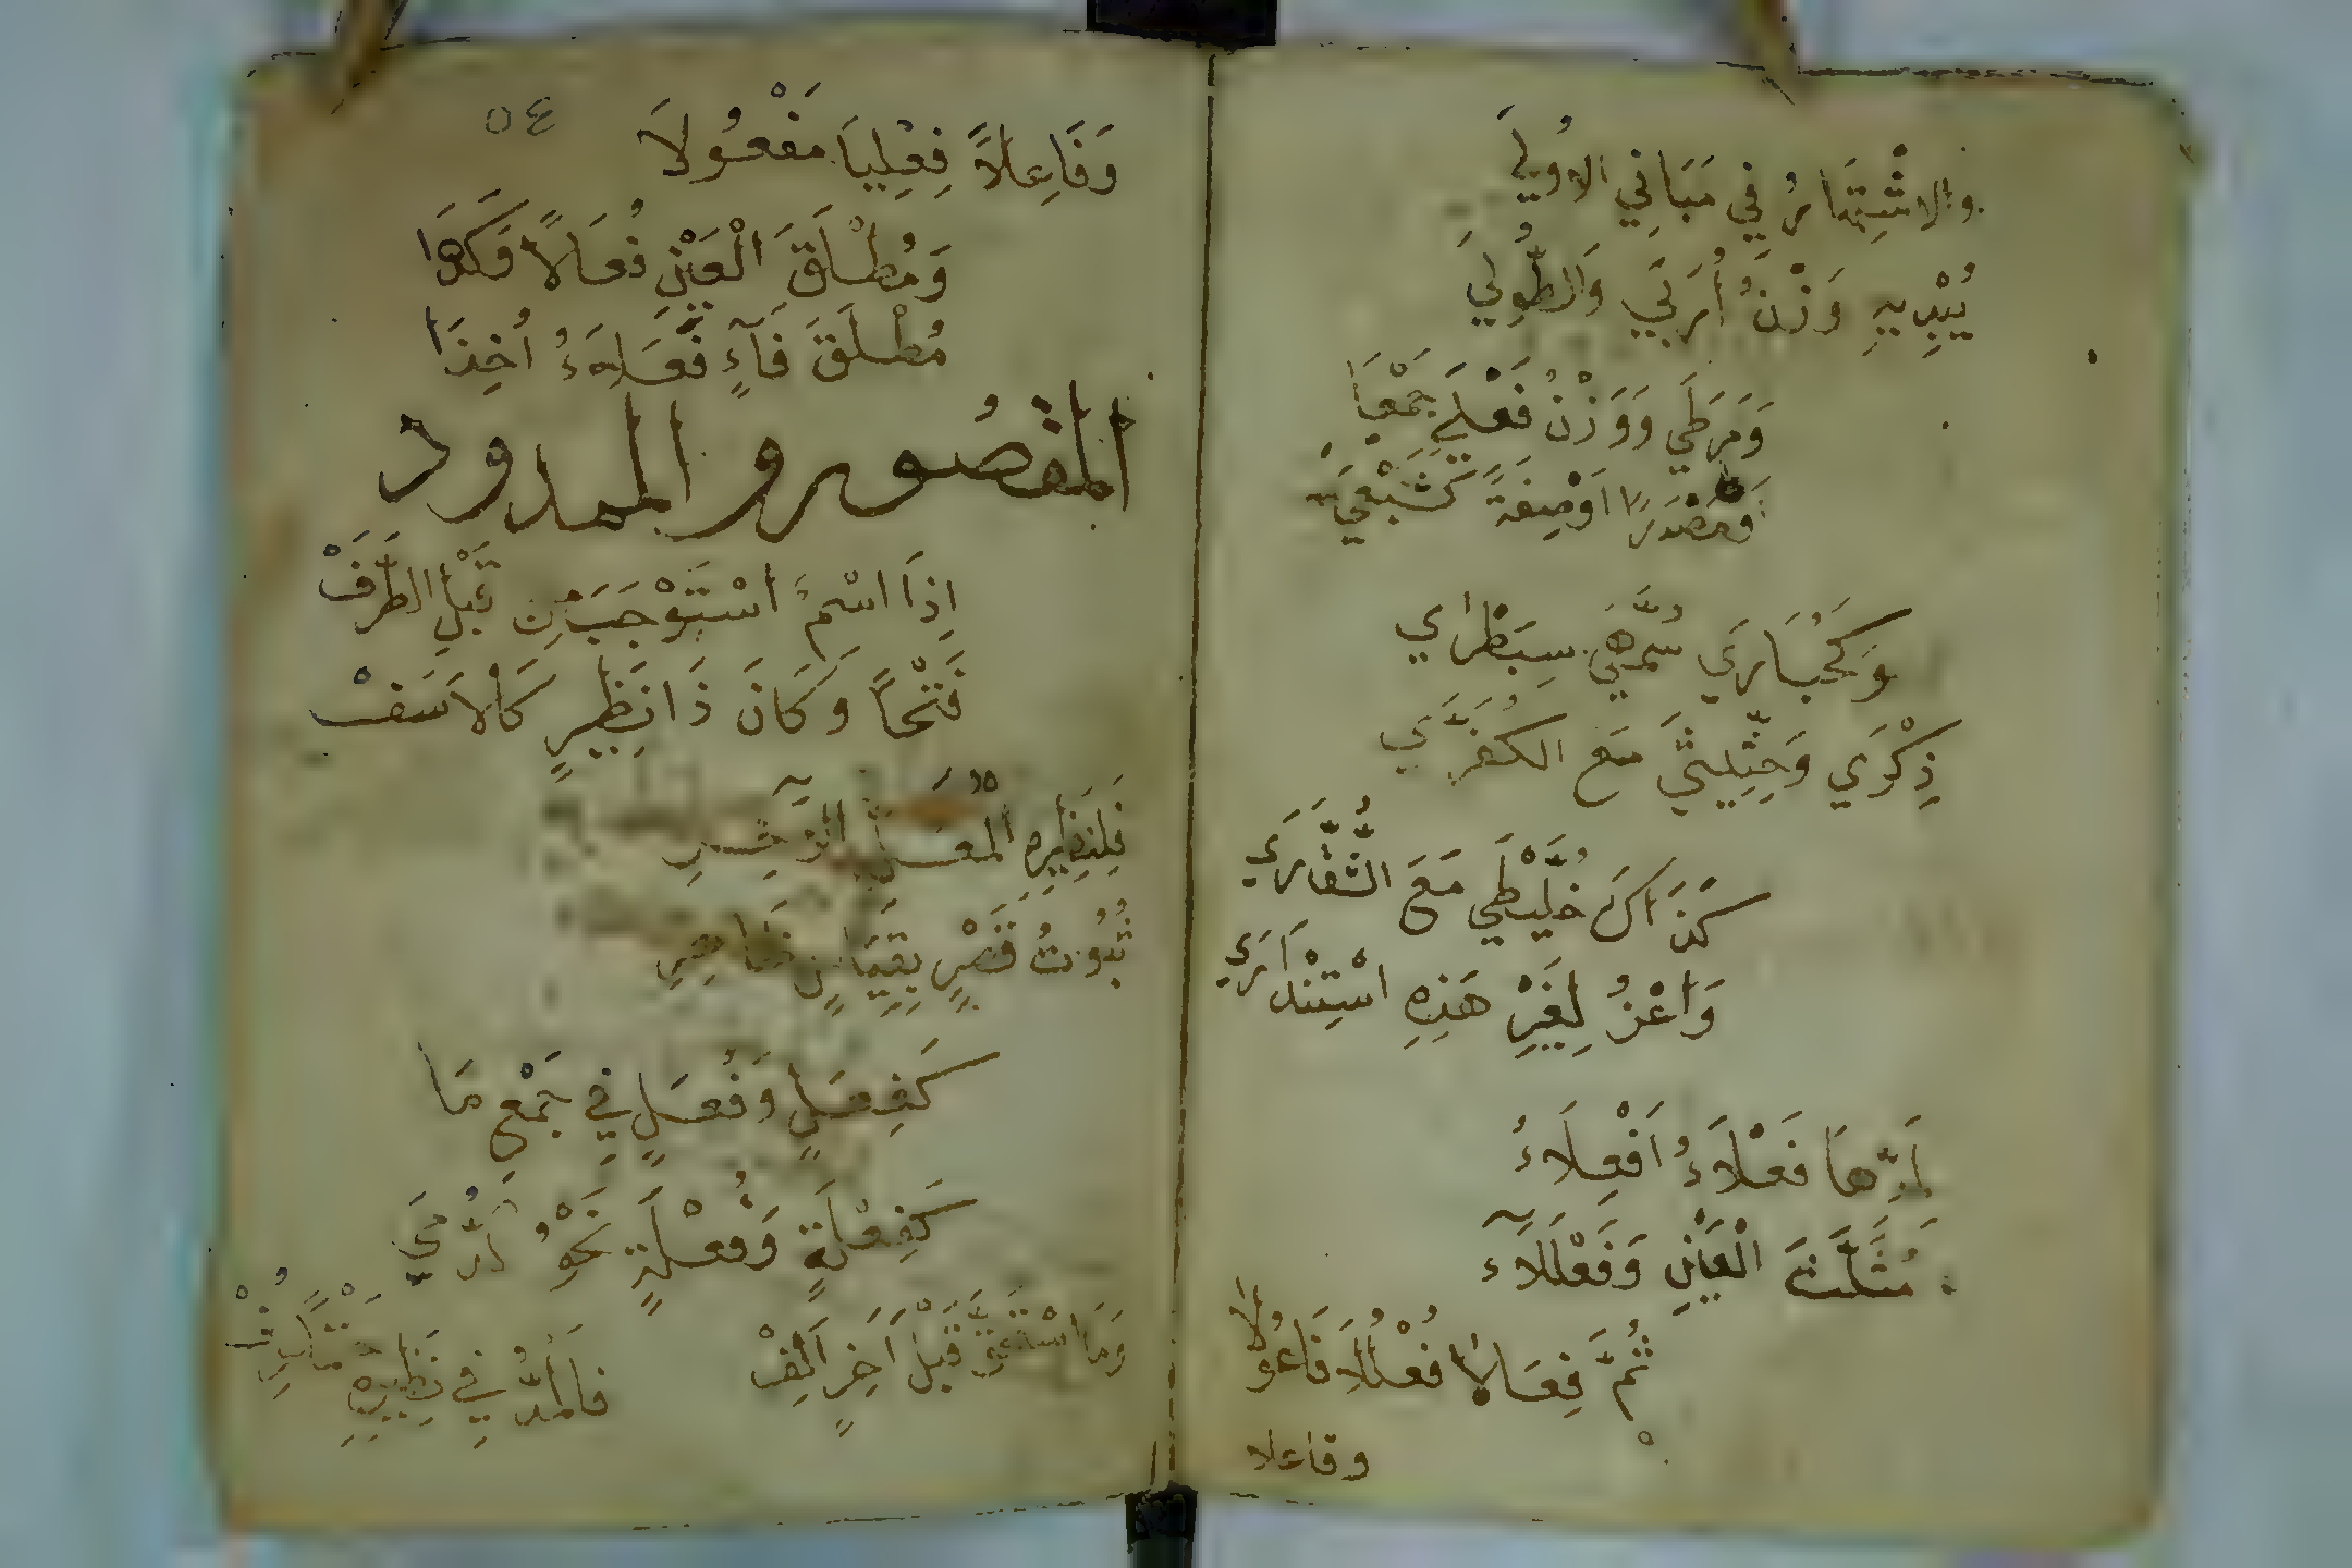 والاشْتِهَارُ فِي مَبَانِي الاُولَى
يُبْدِيهِ وَزْنُ أُرَبَى وَالطُّولَى
وَمَرَطَى وَوَزْنُ فَعْلَى جَمْعَا
اَوْ مَصْدَرًا اَوْ صِفَةً كَشَبْعَى
وَكَحُبَارَى سُمَّهَى سِبَطْرَى
ذِكْرَى وَحِثِّيثَى مَعَ الكُفُرَّى
كَذَاكَ خُلَّيْطَى مَعَ الشُّقَّارَى
وَاعْزُ لِغَيْرِ هَذِهِ اسْتِنْدَارَى
لِمَدِّهَا فَعْلَاءُ اَفْعِلَاءُ
مُثَلَّثَ الْعَيْنِ وَفَعْلَلَآءُ
ثُمَّ فِعَالَا فُعْلُلَا فَاعُولَا
وفاعلا
٥٤
وَفَاعِلَاءَ فِعْلِيَا مَفْعُولَا
وَمُطْلَقَ الْعَيْنِ فُعَالًا وَكَذَا
مُطْلَقَ فَآءٍ فَعَلَاءُ اُخِذَا
المقصُور والممدود
اِذَا اسْمٌ اسْتَوْجَبَ مِن قَبْلِ الطَّرَفْ
فَتْحًا وَكَانَ ذَا نَظِيرٍ كَالاَسَفْ
فَلِنَظِيرِهِ الْمُعَلِّ الآخِرِ
ثُبُوتُ قَصْرٍ بِقِيَاسٍ ظَاهِرِ
كَفِعَلٍ وَفُعَلٍ فِي جَمْعِ مَا
كَفِعْلَةٍ وَفُعْلَةٍ نَحْوُ الدُّمَى
وَمَا اسْتَحَقَّ قَبْلَ آخِرٍ اَلِفْ فَالْمَدُّ فِي نَظِيرِهِ حَتْمًا عُرِفْ